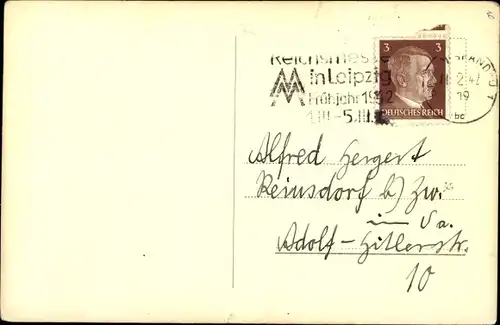 Reichsmesse
in Leipzig
Frühjahr 1942
1.III.-5.III.
3 3
DEUTSCHES REICH
Alfred Hergert
Reinsdorf b/ Zw.
in Sa.
Adolf-Hitlerstr.
10